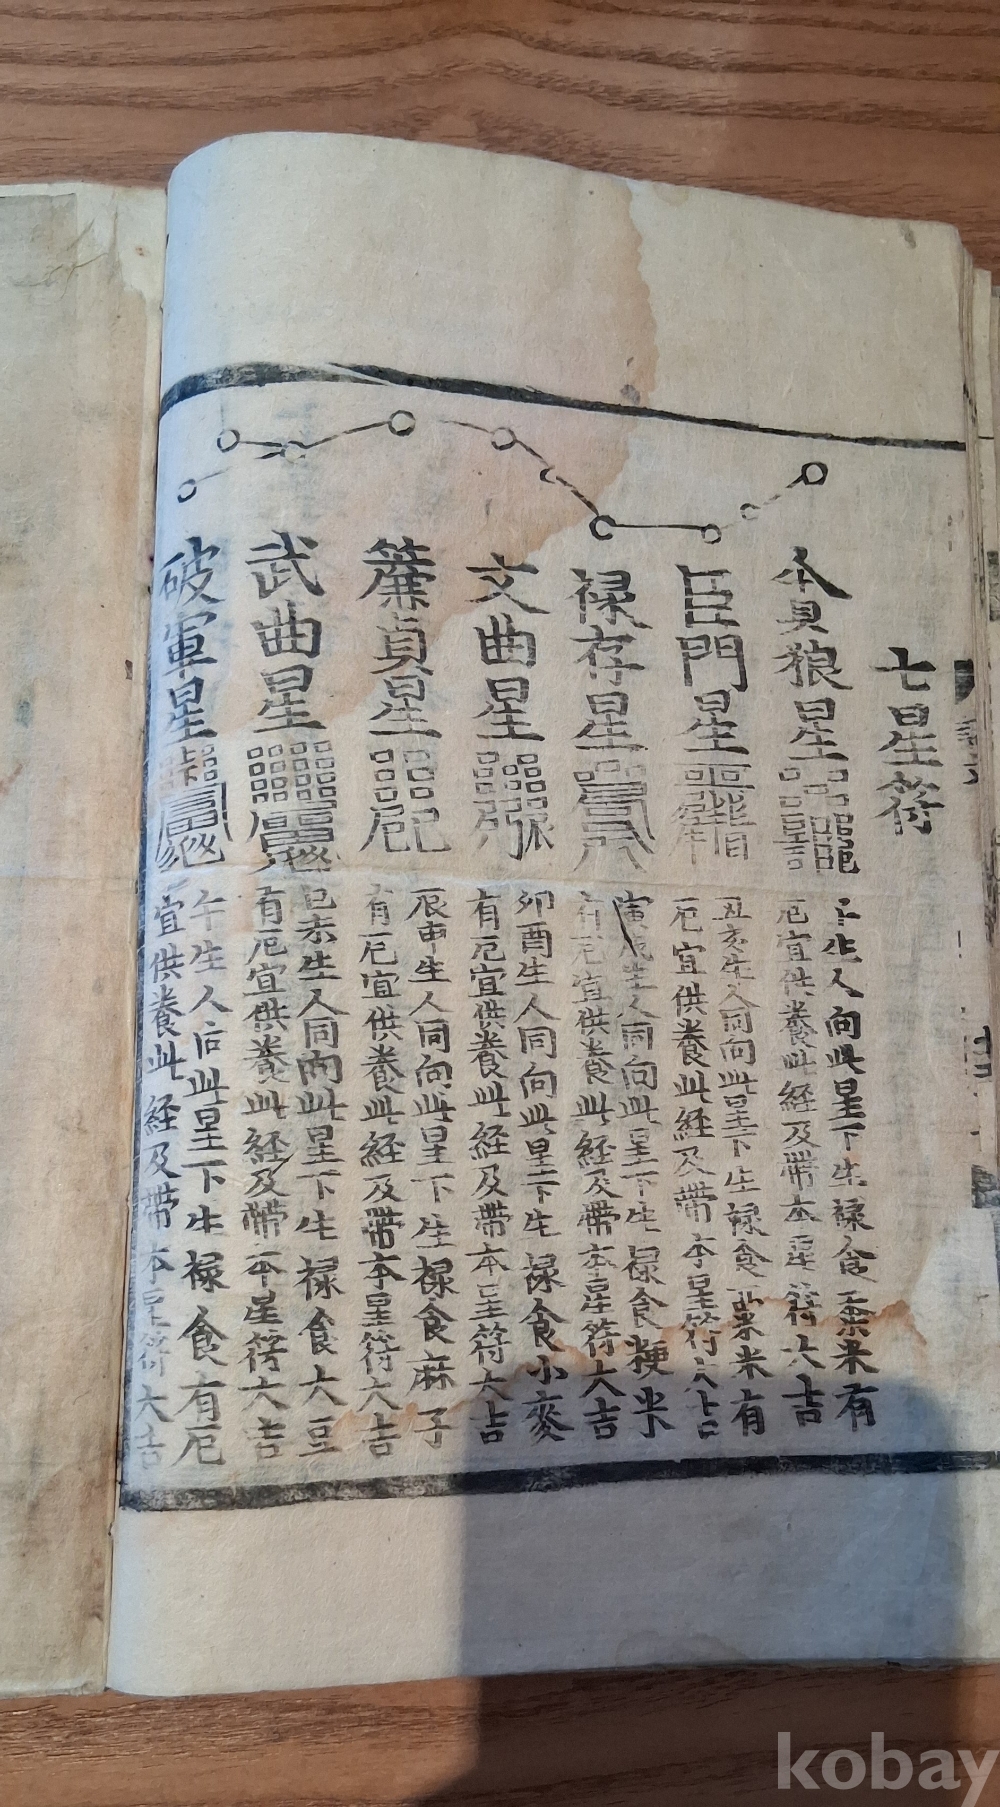 七星符
貪狼星
子生人向此星下生祿食黍米有
厄宜供養此経及帶本星符大吉
巨門星
丑亥生人同向此星下生祿食粟米有
厄宜供養此経及帶本星符大吉
禄存星
寅戌生人同向此星下生祿食粳米
有厄宜供養此経及帶本星符大吉
文曲星
卯酉生人同向此星下生祿食小麥
有厄宜供養此経及帶本星符大吉
簾貞星
辰申生人同向此星下生祿食麻子
有厄宜供養此経及帶本星符大吉
武曲星
巳未生人同向此星下生祿食大豆
有厄宜供養此経及帶本星符大吉
破軍星
午生人向此星下生祿食有厄
宜供養此経及帶本星符大吉
kobay